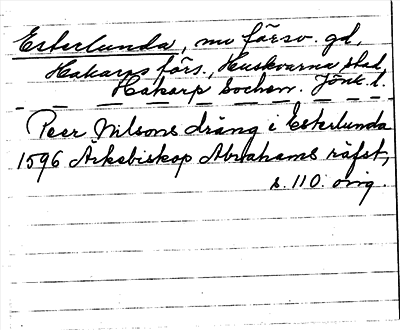 Esterlunda, nu försv. gd,
Hakarps förs., Huskvarna stad,
Hakarp socken. Jönk. l.
Peer Nilsons dräng i Esterlunda
1596 Ärkebiskop Abrahams räfst,
s. 110. orig.